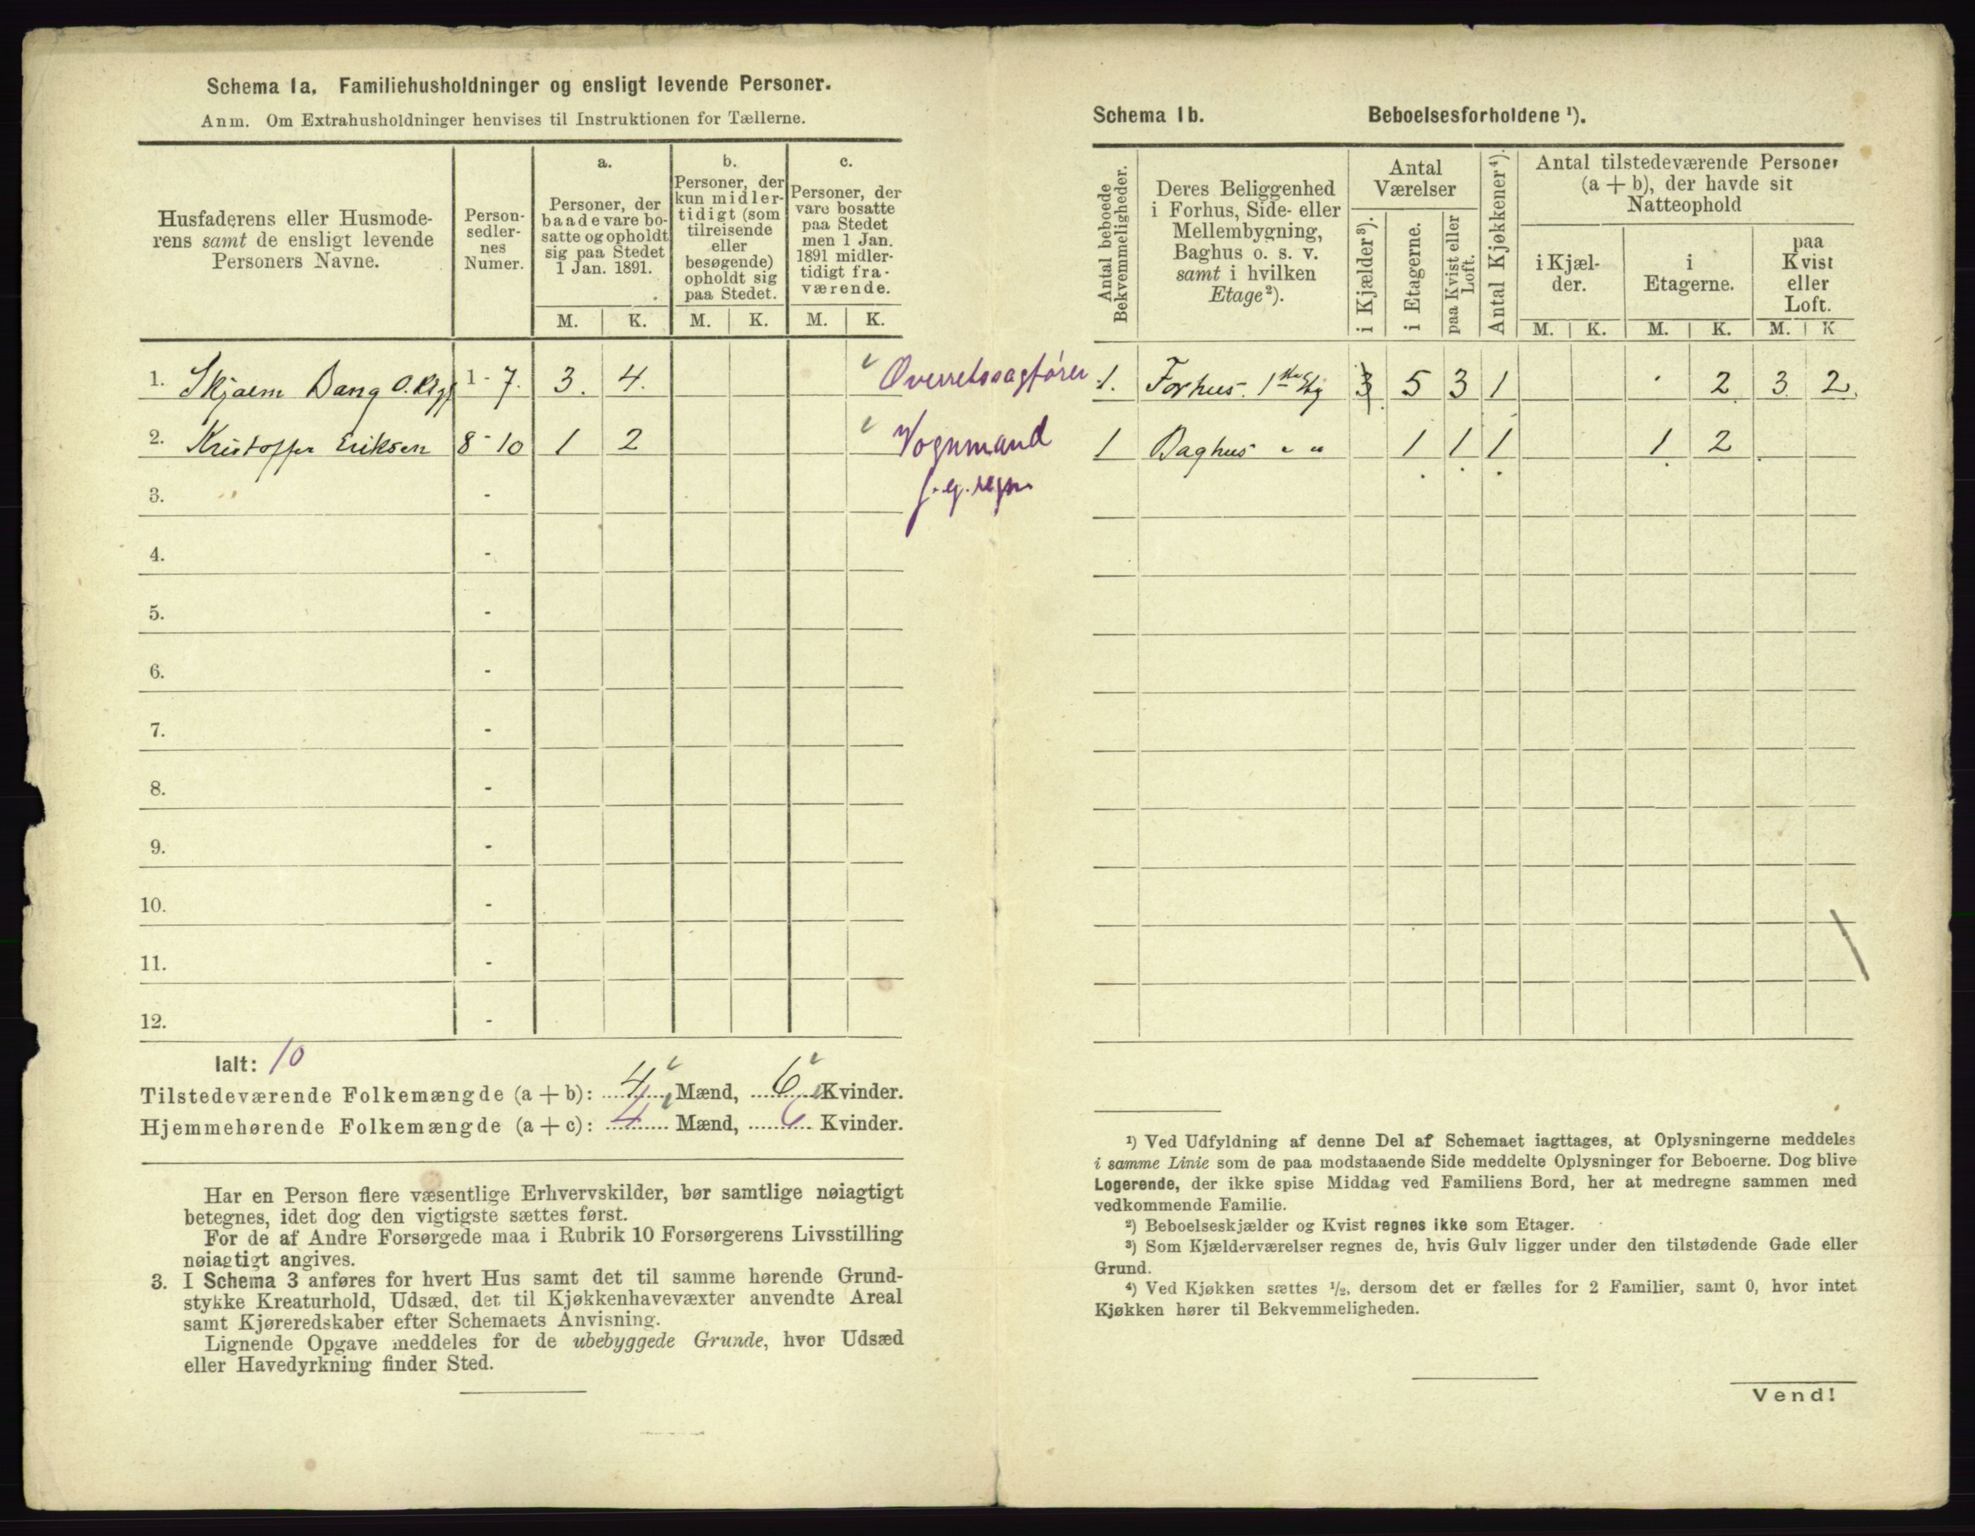 Schema 1a. Familiehusholdninger og ensligt levende Personer.
Anm. Om Extrahusholdninger henvises til Instruktionen for Tællerne.
Husfaderens eller Husmode-
rens samt de ensligt levende
Personers Navne.
Person-
sedler-
nes
Numer.
a.
Personer, der
baade vare bo-
satte og opholdt
sig paa Stedet
1 Jan. 1891.
b.
Personer, der
kun midler-
tidigt (som
tilreisende
eller
besøgende)
opholdt sig
paa Stedet.
c.
Personer, der
vare bosatte
paa Stedet
men 1 Jan.
1891 midler-
tidigt fra-
værende.
M. K. M. K. M. K.
1. Skjolm Bang 1 - 7. 3. 4. Overretssagfører
2. Kristoffer Eriksen 8 - 10 1 2 Vognmand
f. eg. regn.
3. -
4. -
5. -
6. -
7. -
8. -
9. -
10. -
11. -
12. -
Ialt: 10
Tilstedeværende Folkemængde (a + b): 4 Mænd, 6 Kvinder.
Hjemmehørende Folkemængde (a + c): 4 Mænd, 6 Kvinder.
Har en Person flere væsentlige Erhvervskilder, bør samtlige nøiagtigt
betegnes, idet dog den vigtigste sættes først.
For de af Andre Forsørgede maa i Rubrik 10 Forsørgerens Livsstilling
nøiagtigt angives.
3. I Schema 3 anføres for hvert Hus samt det til samme hørende Grund-
stykke Kreaturhold, Udsæd, det til Kjøkkenhavevæxter anvendte Areal
samt Kjøreredskaber efter Schemaets Anvisning.
Lignende Opgave meddeles for de ubebyggede Grunde, hvor Udsæd
eller Havedyrkning finder Sted.
Schema 1b. Beboelsesforholdene ¹).
Antal beboede
Bekvemmeligheder.
Deres Beliggenhed
i Forhus, Side- eller
Mellembygning,
Baghus o. s. v.
samt i hvilken
Etage²).
Antal
Værelser
i Kjælder³).
i Etagerne.
paa Kvist eller
Loft.
Antal Kjøkkener⁴).
Antal tilstedeværende Personer
(a + b), der havde sit
Natteophold
i Kjæl-
der.
i
Etagerne.
paa
Kvist
eller
Loft.
M. K. M. K. M. K
1. Forhus. 1ste Etg 3 5 3 1 2 3 2
1 Baghus " " 1 1 1 1 2
¹) Ved Udfyldning af denne Del af Schemaet iagttages, at Oplysningerne meddeles
i samme Linie som de paa modstaaende Side meddelte Oplysninger for Beboerne. Dog blive
Logerende, der ikke spise Middag ved Familiens Bord, her at medregne sammen med
vedkommende Familie.
²) Beboelseskjælder og Kvist regnes ikke som Etager.
³) Som Kjælderværelser regnes de, hvis Gulv ligger under den tilstødende Gade eller
Grund.
⁴) Ved Kjøkken sættes ½, dersom det er fælles for 2 Familier, samt 0, hvor intet
Kjøkken hører til Bekvemmeligheden.
Vend!